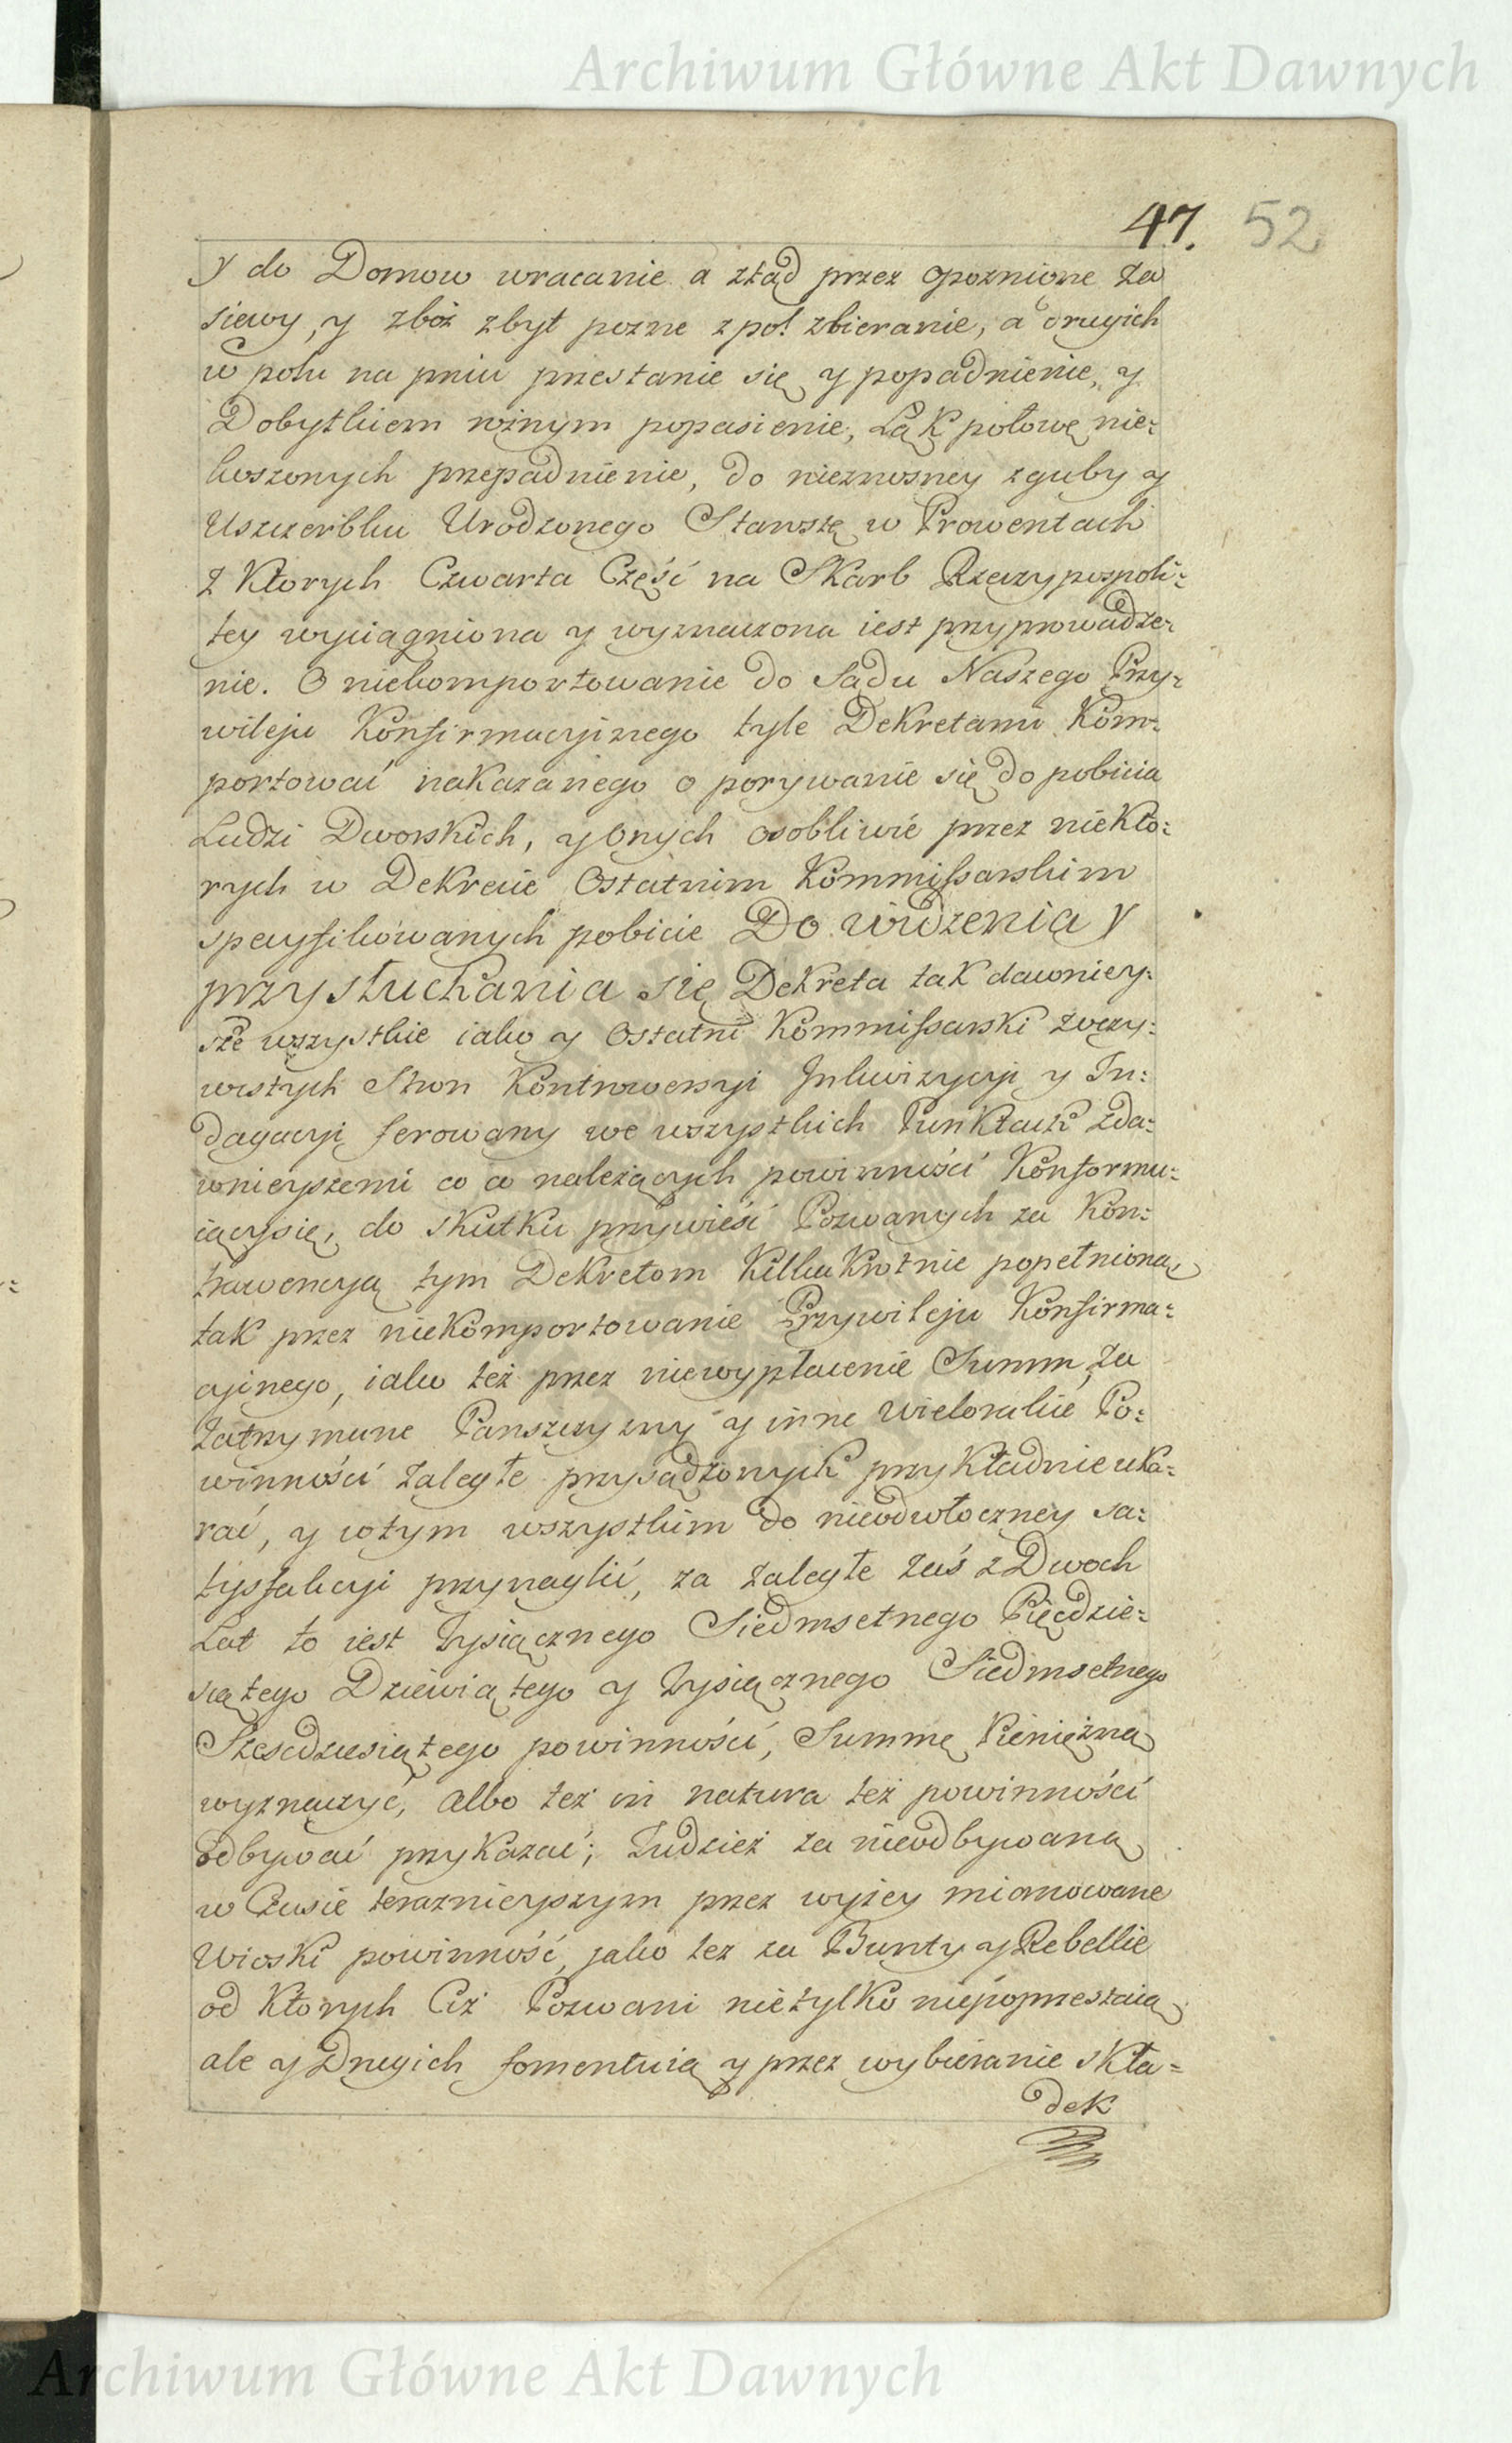 Archiwum Główne Akt Dawnych
47. 52
y do Domow wracanie a ztąd przez opoznione Za
siewy, y zboż zbyt pozne z pol zbieranie, a drugich
w polu na pniu przestanie się y popadnienie, y
Dobytkiem rożnym popasienie, Łąk połowę nie:
koszonych przepadnienie, do nieznosney zguby y
Uszczerbku Urodzonego Starostę w Prowentach
z Ktorych Czwarta Część na Skarb Rzeczypospoli:
tey wyciągniona y wyznaczona iest przyprowadze:
nie. O niekomportowanie do Sądu Naszego Przy:
wileju Konfirmacyjnego tyle Dekretami Kom:
portować nakazanego o porywanie się do pobicia
Ludzi Dworskich, y Onych osobliwie przez niekto:
rych w Dekrecie Ostatnim Kommissarskim
specyfikowanych pobicie Do widzenia y
przysłuchania się Dekreta tak dawniey:
sze wszystkie iako y Ostatni Kommissarski zoczy:
wistych Stron Kontrowersyi Inkwizycyi y In:
dagacyi ferowany we wszystkich Punktach zda:
wnieyszemi co do należących powinności Konformu:
iący się, do skutku przywieść Pozwanych za Kon:
trawencyą tym Dekretom Kilkakrotnie popełnioną,
tak przez niekomportowanie Przywileju Konfirma:
cyinego, iako też przez niewypłacenie Summ, za
Zatrzymane Panszczyzny y inne wielorakie Po:
winności zaległe przysądzonych przykładnie uka:
rać, y w tym wszystkim do nieodwłoczney sa:
tysfakcyi przynaglić, za zaległe zaś z Dwoch
Lat to iest Tysiącznego Siedmsetnego Pięćdzie:
siątego Dziewiątego y Tysiącznego Siedmsetnego
Szescdziesiątego powinności, Summę Pieniężną
wyznaczyć, albo też in natura też powinności
odbywać przykazać; Tudzież za nieodbywaną
w Czasie teraznieyszym przez wyżey mianowane
Wioski powinność, jako tez za Bunty y Rebellie
od Ktorych Ciż Pozwani nietylko niepoprzestaią
ale y Drugich fomentuią y przez wybieranie skła=
dek
Archiwum Główne Akt Dawnych